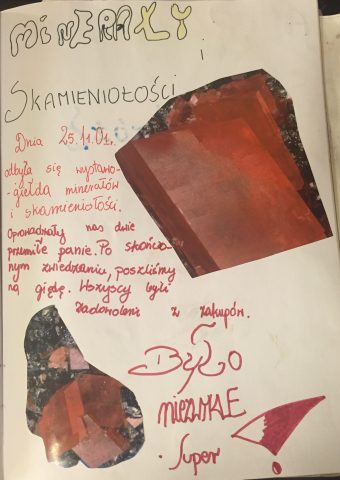 MINERAŁY
i
SKAMIENIOŁOŚCI
Dnia 25.11.01r.
odbyła się wystawo-
-giełda minerałów
i skamieniołości.
Oprowadzały nas dwie
przemiłe panie. Po skończo-
nym zwiedzaniu, poszliśmy
na giędę. Wszyscy byli
zadowoleni z zakupów.
Było
niezwykłe
Super!